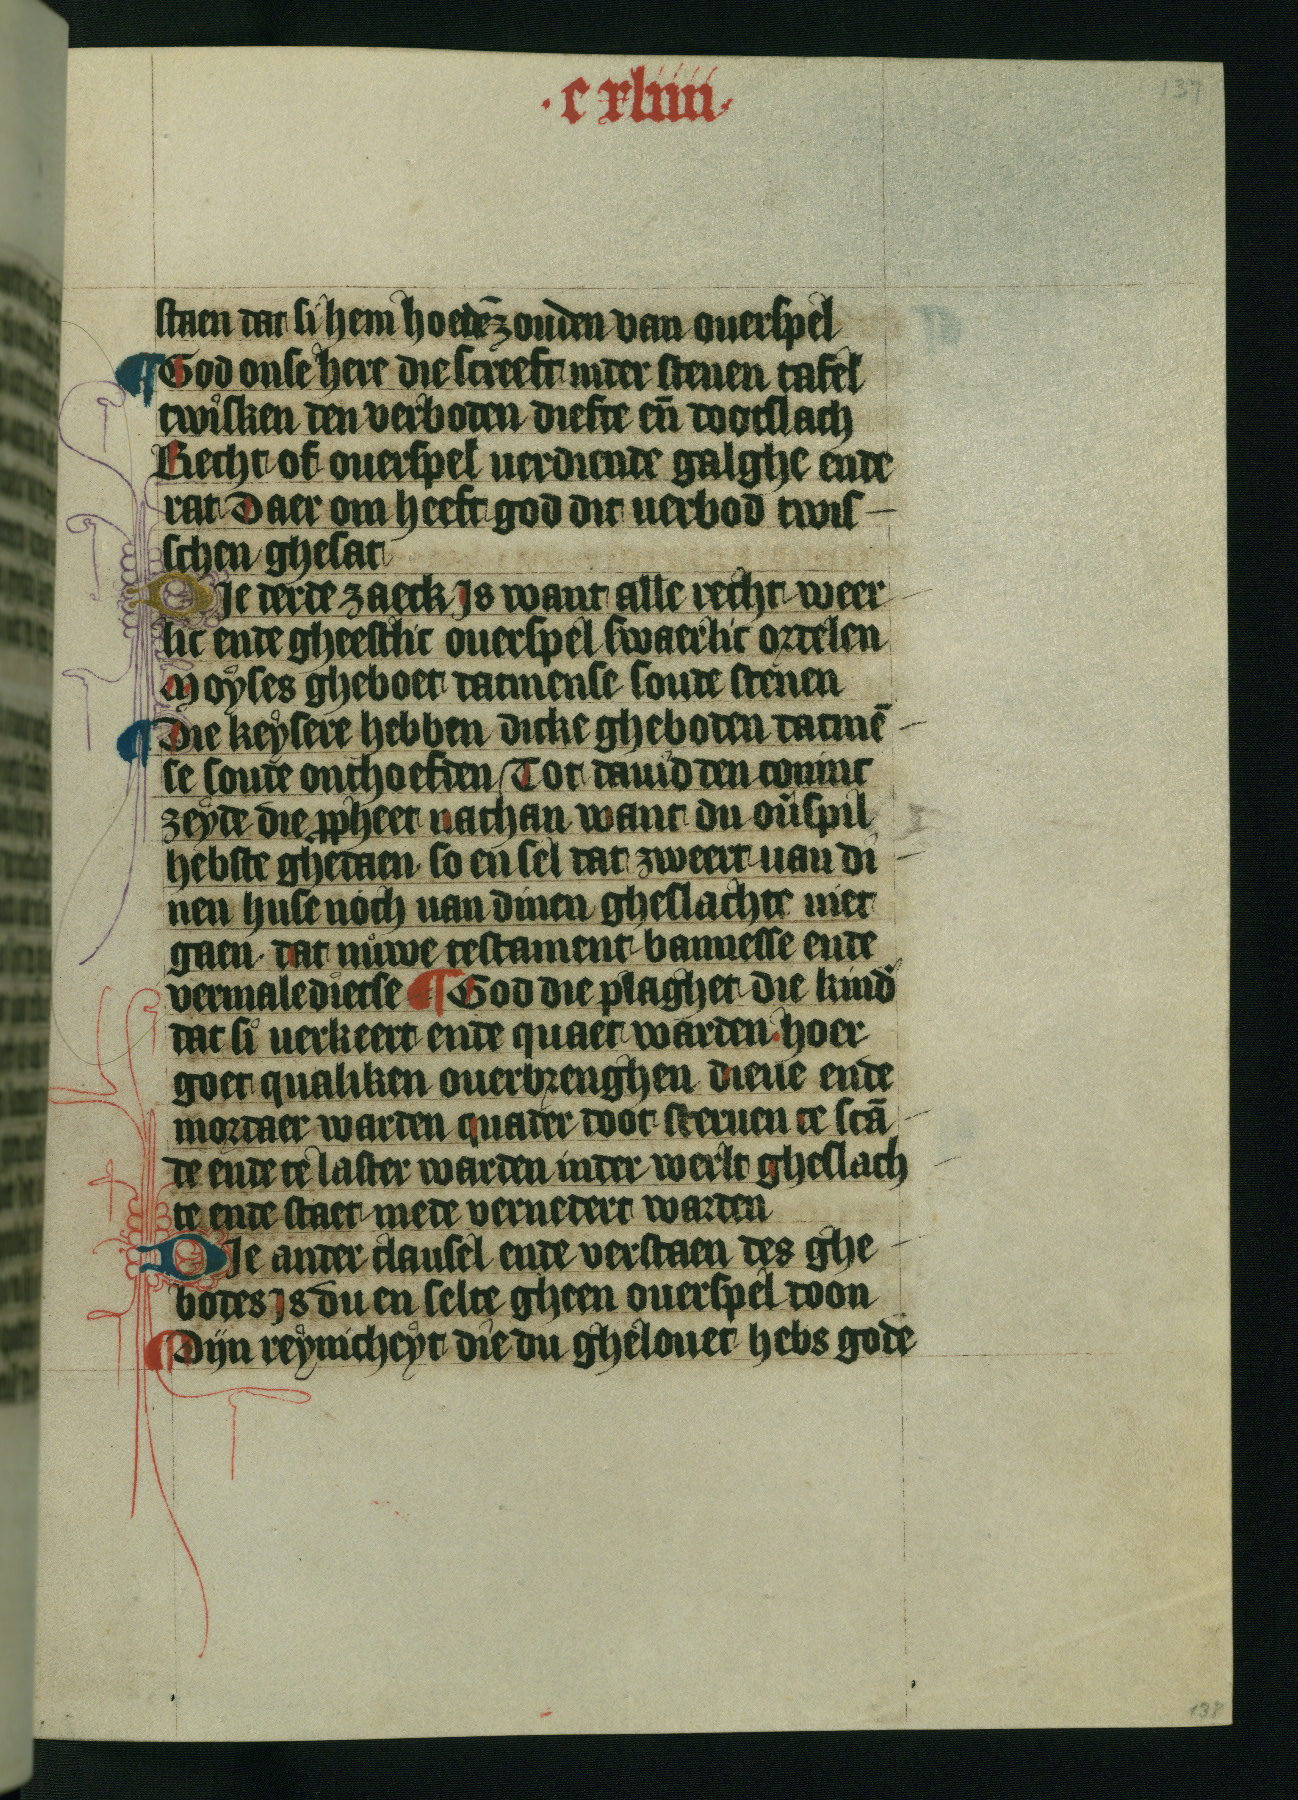 ·c xliiii·
137
staen dat si hem hoedē zouden van ouerspel
¶ God onse here die screeft inder stenen tafel
twisken den verboden diefte eñ dootslach
Recht of ouerspel uerdiende galghe ende
rat Daer om heeft god dit uerbod twis-
schen ghesat
DJe derde zaeck js want alle recht weer-
lic ende gheestlic ouerspel swaerlic ordelen
Moyses gheboet datmense soude stenen
¶ Die keysere hebben dicke gheboden datmē-
se soude onthoefden Tot dauid den coninc
zeyde die ꝓpheet nathan want du ou̅spil
hebste ghedaen so en sel dat zweert uan di-
nen huse noch uan dinen gheslachte niet
gaen· dat nuwe testament bannesse ende
vermaledietse ¶ God die plaghet die kind̛
dat si uerkeert ende quaet warden· hoer
goet qualiken ouerbrenghen dieue ende
mordaer warden quader doot steruen te scā-
de ende te laster warden inder werlt gheslach-
te ende staet mede vernedert warden
DJe ander clausel ende verstaen des ghe-
bodes js du en selte gheen ouerspel doon
¶ Dijn reynicheyt die du ghelouet hebs gode
138